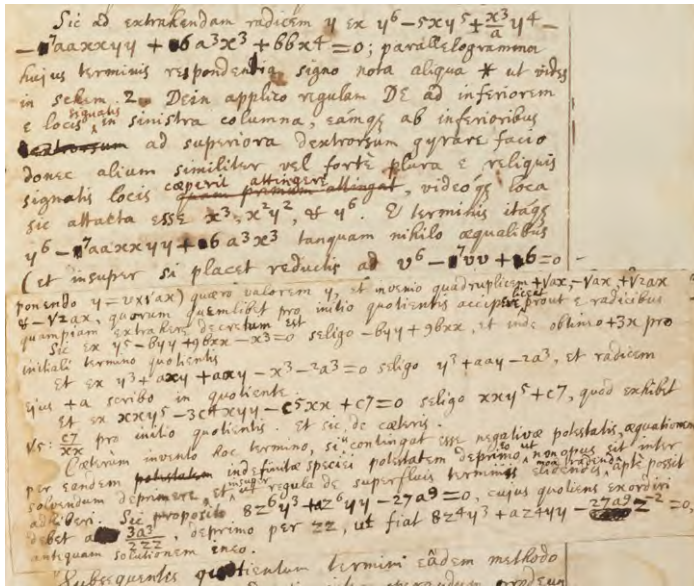 Sic ad extrahendam radicem y ex y⁶ − 5xy⁵ + x³/a y⁴ −
− 7aaxxyy + 6a³x³ + bbx⁴ = 0; parallelogrammi
hujus terminis respondentia signo nota aliqua * ut vides
in schem. 2. Dein applico regulam DE ad inferiorem
e locis signatis in sinistra columna, eámqȝ ab inferioribus
dextrorsum ad superiora dextrorsum gyrare facio
donec alium similiter vel fortè plura e reliquis
signatis locis cœperit attingere, videóqȝ loca
sic attacta esse x³, x²y², & y⁶. E terminis itáqȝ
y⁶ − 7aaxxyy + 6a³x³ tanquam nihilo æqualibus
(et insuper si placet reductis ad v⁶ − 7vv + 6 = 0
ponendo y = v×√ax) quæro valorem y, et invenio quadruplicem +√ax, −√ax, +√2ax
& −√2ax, quorum quemlibet pro initio quotientis accipere licet prout e radicibus
quampiam extrahere decretum est
Sic ex y⁵ − byy + 9bxx − x³ = 0 seligo −byy + 9bxx, et inde obtineo +3x pro
initiali termino quotientis
Et ex y³ + axy + aay − x³ − 2a³ = 0 seligo y³ + aay − 2a³, et radicem
ejus +a scribo in quotiente.
Et ex xxy⁵ − 3c⁴xyy − c⁵xx + c7 = 0 seligo xxy⁵ + c7, quod exhibet
√5: c7/xx pro initio quotientis. Et sic de cæteris.
Cæterum invento hoc termino, si contingat esse negativæ potestatis, æquationem
per eandem indefinitæ speciei potestatem deprimo ut non opus sit inter
solvendum deprimere, et insuper ut regula de superfluis terminis mox tradenda aptè possit
adhiberi. Sic proposito 8z⁶y³ + az⁶yy − 27a⁹ = 0, cujus quotiens exordiri
debet a 3a³/2zz, deprimo per zz, ut fiat 8z⁴y³ + az⁴yy − 27a⁹z⁻² = 0,
antequam solutionem ineo.
Subsequentes quotientum termini eâdem methodo